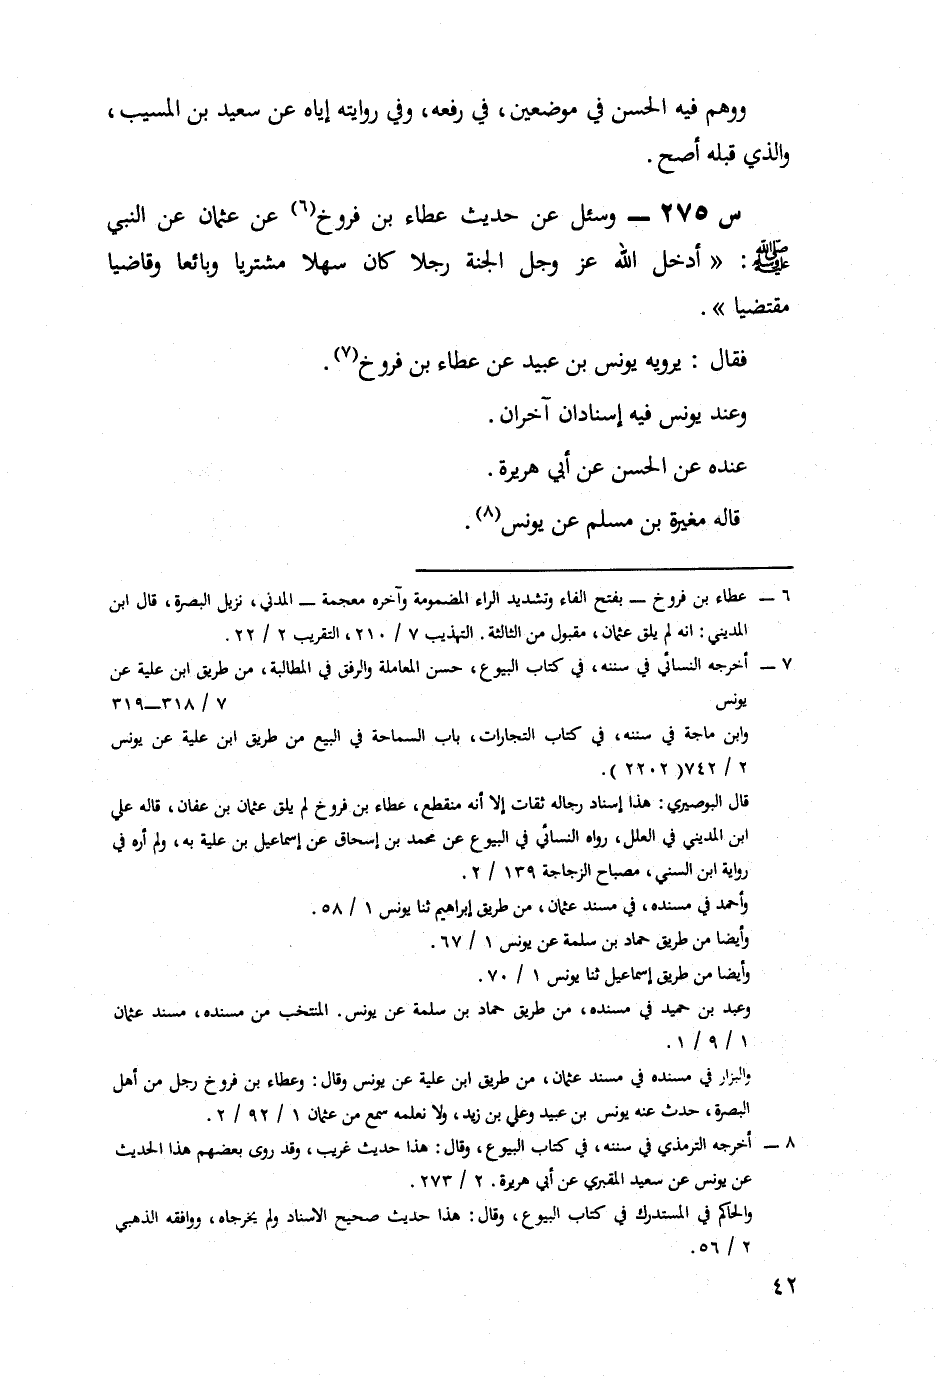 ووهم فيه الحسن في موضعين، في رفعه، وفي روايته إياه عن سعيد بن المسيب،
والذي قبله أصح.
س ٢٧٥ ــ وسئل عن حديث عطاء بن فروخ(٦) عن عثمان عن النبي
ﷺ : « أدخل الله عز وجل الجنة رجلا كان سهلا مشتريا وبائعا وقاضيا
مقتضيا ».
فقال : يرويه يونس بن عبيد عن عطاء بن فروخ(٧).
وعند يونس فيه إسنادان آخران.
عنده عن الحسن عن أبي هريرة.
قاله مغيرة بن مسلم عن يونس(٨).
٦ ــ عطاء بن فروخ ــ بفتح الفاء وتشديد الراء المضمومة وآخره معجمة ــ المدني، نزيل البصرة، قال ابن
المديني: انه لم يلق عثمان، مقبول من الثالثة. التهذيب ٧ / ٢١٠، التقريب ٢ / ٢٢.
٧ ــ أخرجه النسائي في سننه، في كتاب البيوع، حسن المعاملة والرفق في المطالبة، من طريق ابن علية عن
يونس ٧ / ٣١٨ــ٣١٩
وابن ماجة في سننه، في كتاب التجارات، باب السماحة في البيع من طريق ابن علية عن يونس
٢ / ٧٤٢( ٢٢٠٢ ).
قال البوصيري: هذا إسناد رجاله ثقات إلا أنه منقطع، عطاء بن فروخ لم يلق عثمان بن عفان، قاله علي
ابن المديني في العلل، رواه النسائي في البيوع عن محمد بن إسحاق عن إسماعيل بن علية به، ولم أره في
رواية ابن السني، مصباح الزجاجة ١٣٩ / ٢.
وأحمد في مسنده، في مسند عثمان، من طريق إبراهيم ثنا يونس ١ / ٥٨.
وأيضا من طريق حماد بن سلمة عن يونس ١ / ٦٧.
وأيضا من طريق إسماعيل ثنا يونس ١ / ٧٠.
وعبد بن حميد في مسنده، من طريق حماد بن سلمة عن يونس. المنتخب من مسنده، مسند عثمان
١ / ٩ / ١.
والبزار في مسنده في مسند عثمان، من طريق ابن علية عن يونس وقال: وعطاء بن فروخ رجل من أهل
البصرة، حدث عنه يونس بن عبيد وعلي بن زيد، ولا نعلمه سمع من عثمان ١ / ٩٢ / ٢.
٨ ــ أخرجه الترمذي في سننه، في كتاب البيوع، وقال: هذا حديث غريب، وقد روى بعضهم هذا الحديث
عن يونس عن سعيد المقبري عن أبي هريرة. ٢ / ٢٧٣.
والحاكم في المستدرك في كتاب البيوع، وقال: هذا حديث صحيح الاسناد ولم يخرجاه، ووافقه الذهبي
٢ / ٥٦.
٤٢